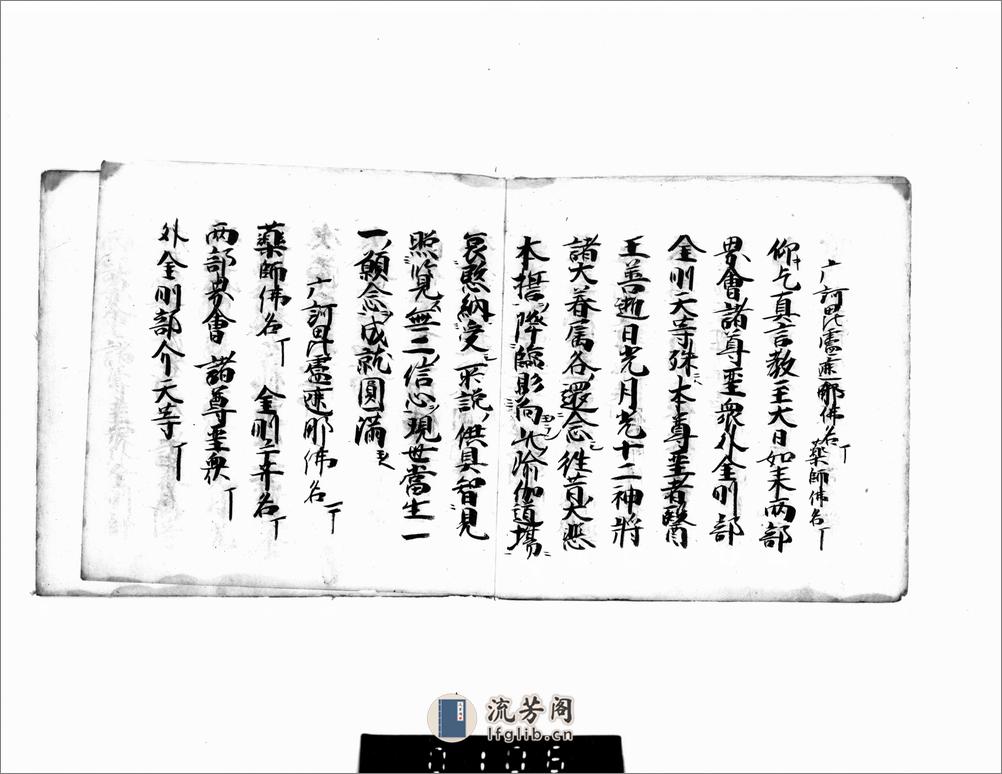 广訶毘盧遮那佛名丁 藥師佛名丁
仰乞真言教主大日如来両部
界會諸尊聖衆外金剛部
金剛天等殊本尊聖者醫
王善逝日光月光十二神將
諸大眷属各還念往昔大悲
本誓降臨影向此瑜伽道場
哀愍納受所説供具智見
照覧無二信心現世當生一
一願念成就圓滿
广訶毘盧遮那佛名丁
藥師佛名丁 金剛名丁
両部界會諸尊聖衆丁
外金剛部介天等丁
流芳阁
lfglib.cn
0106